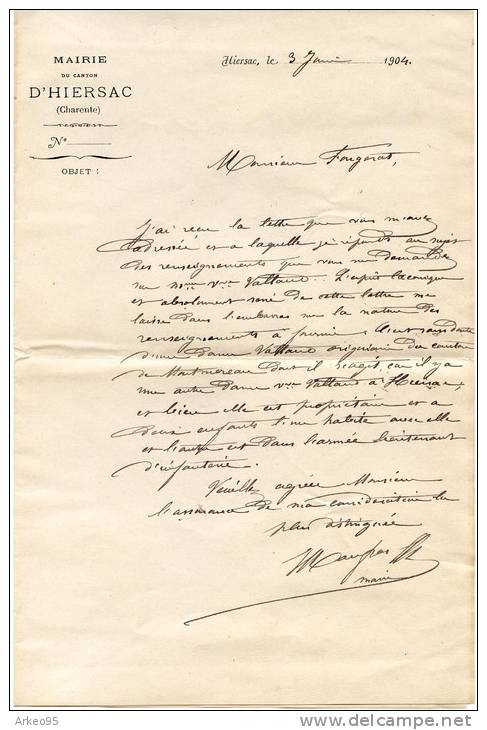 MAIRIE
DU CANTON
D'HIERSAC
(Charente)
N°
OBJET :
Hiersac, le 3 1904.
Monsieur Fougerat,
J'ai reçu la lettre que vous m'avez
adressée et a laquelle je réponds au sujet
des renseignements que vous me demandez
sur Vve Vallaud. laconique
et absolument de cette lettre me
laisse dans l'embarras sur la nature des
renseignements à fournir c'est sans doute
d'une dame Vallaud originaire du canton
de Montmoreau dont il s'agit, car il y a
une autre dame Vve Vallaud à Hiersac
et bien elle est propriétaire et a
deux enfants l'un habite avec elle
et l'autre est dans l'armée lieutenant
d'infanterie.
Veuillez agréer Monsieur
l'assurance de ma considération la
plus distinguée
maire
Arkeo95
delcampe.net